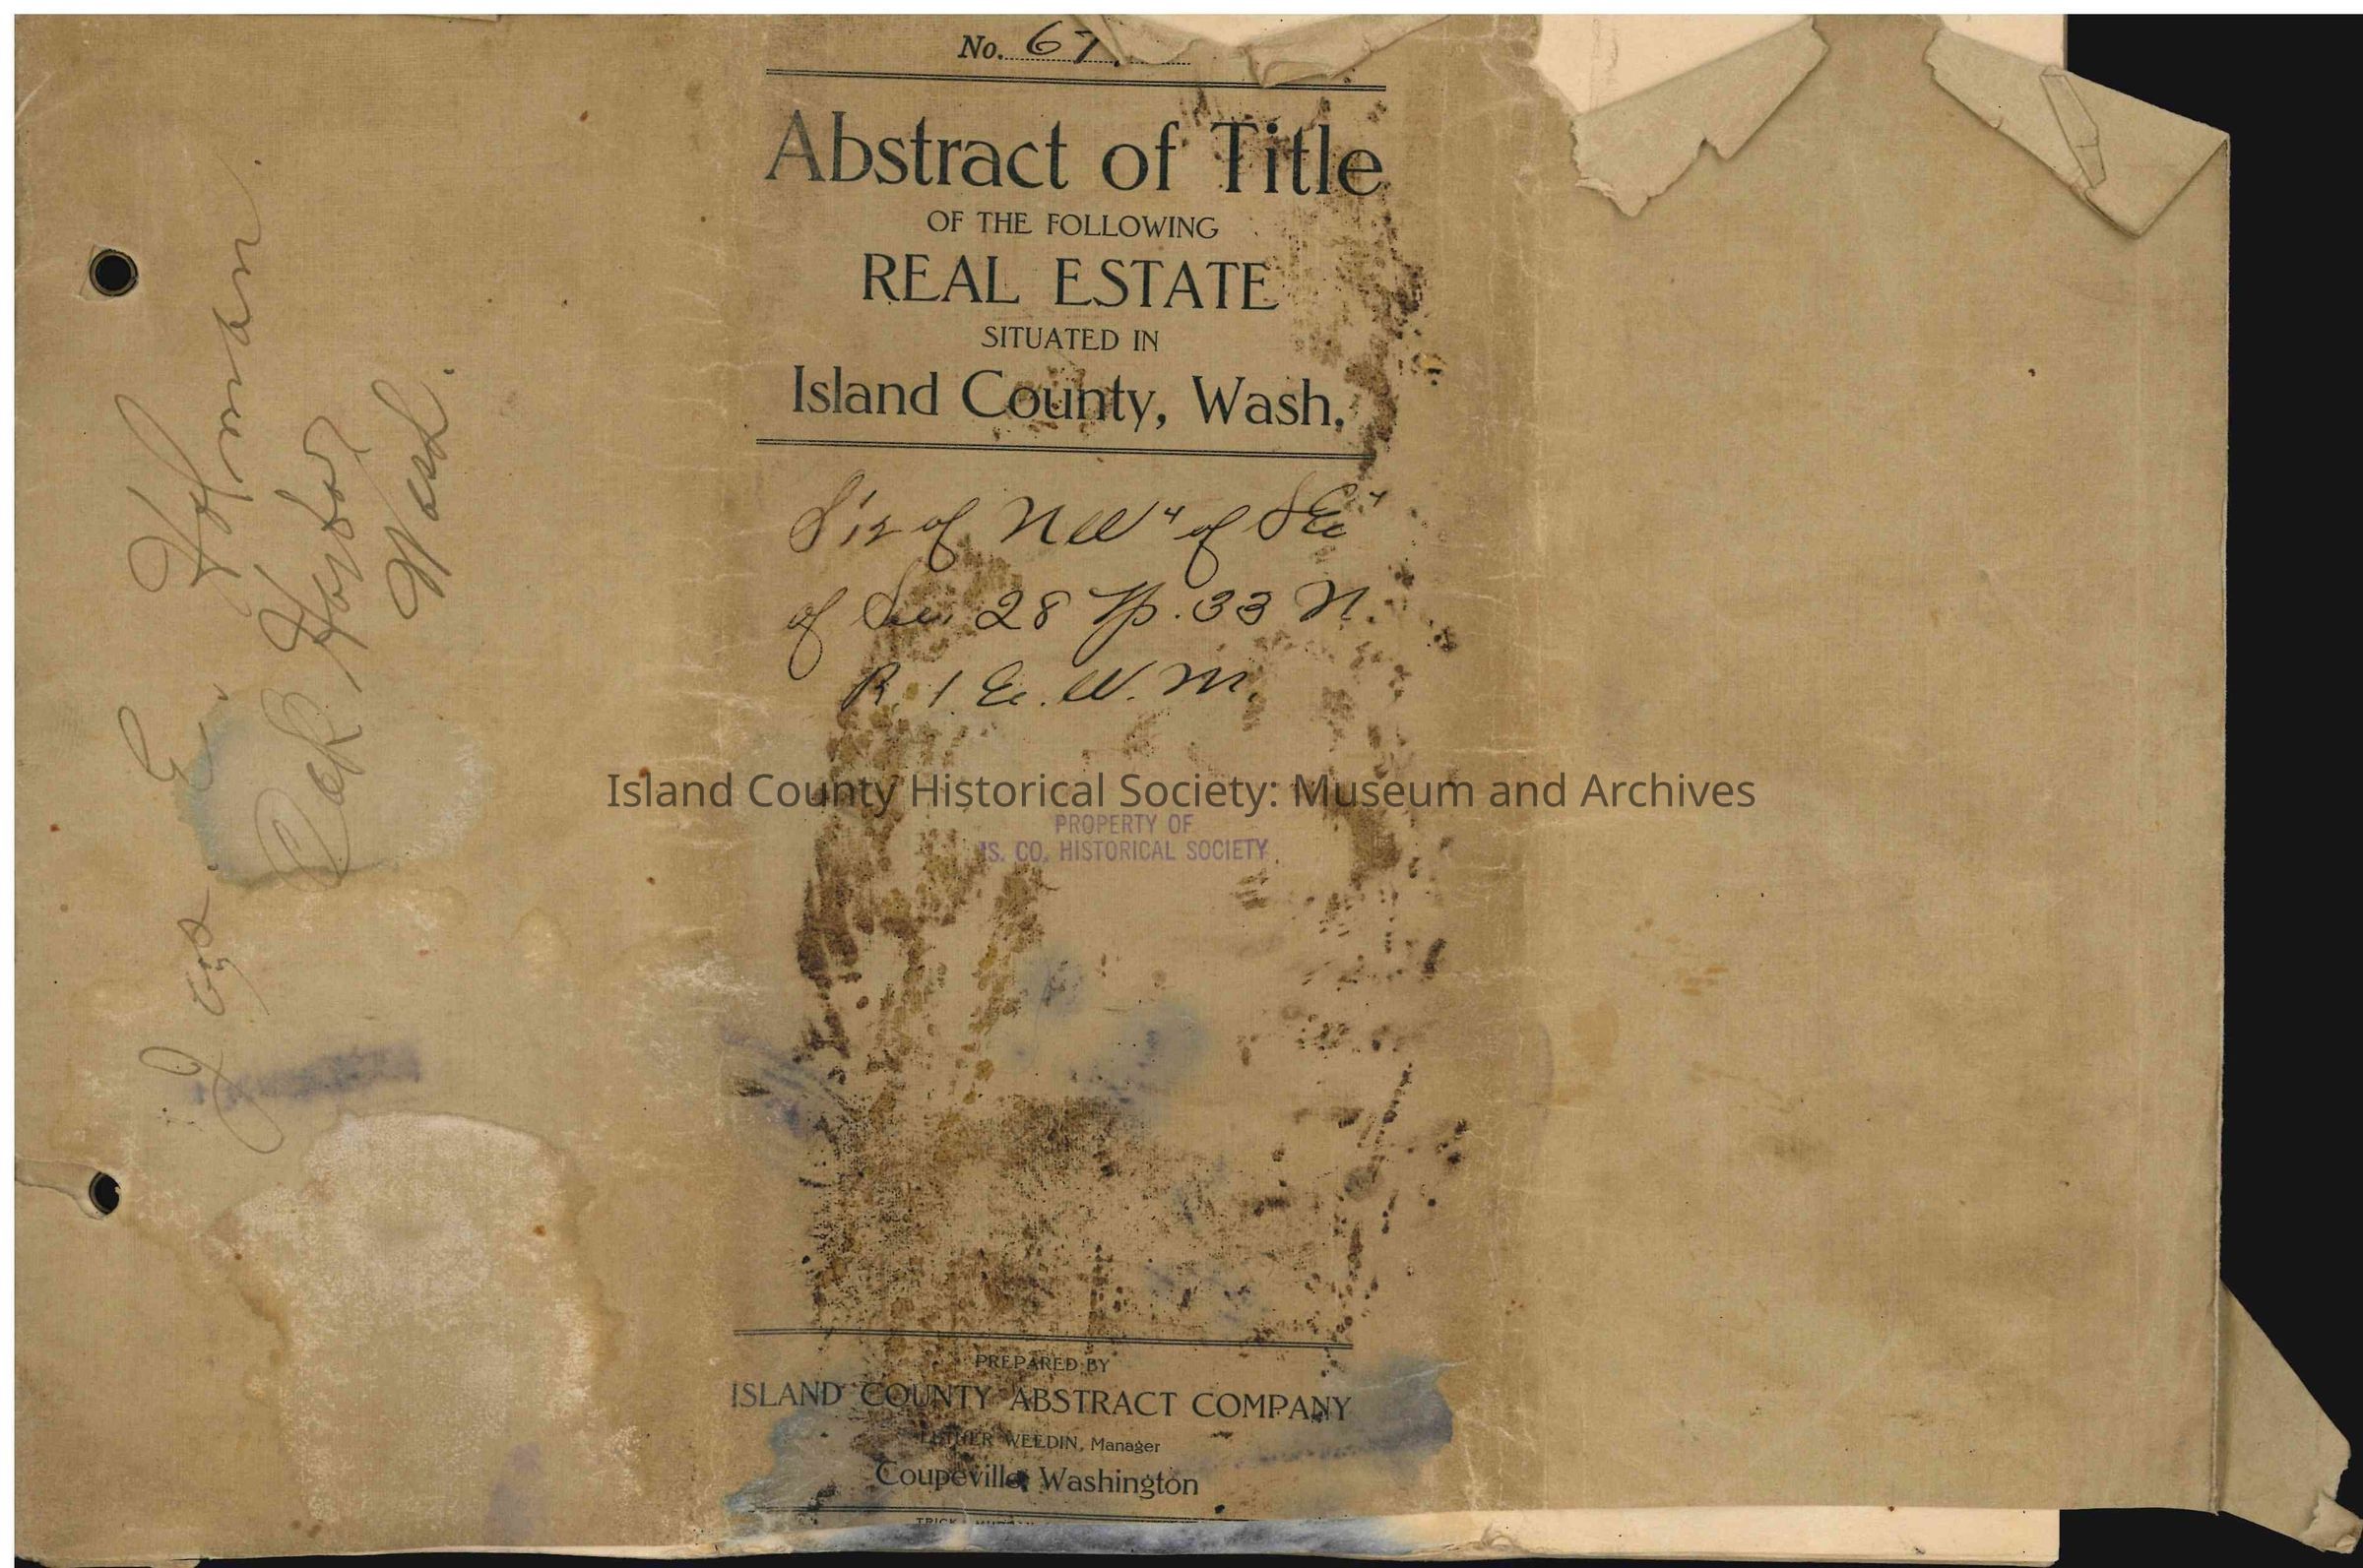 No. 67.
Abstract of Title
OF THE FOLLOWING
REAL ESTATE
SITUATED IN
Island County, Wash.
S 1/2 of NW 4 of SE 4
of Sec. 28 Tp. 33 N.
R. 1 E. W. M.
Island County Historical Society: Museum and Archives
PROPERTY OF
IS. CO. HISTORICAL SOCIETY
PREPARED BY
ISLAND COUNTY ABSTRACT COMPANY
LUTHER WEEDIN, Manager
Coupeville, Washington
TRICK
Jos. E. Holman.
Oak Harbor
Wash.